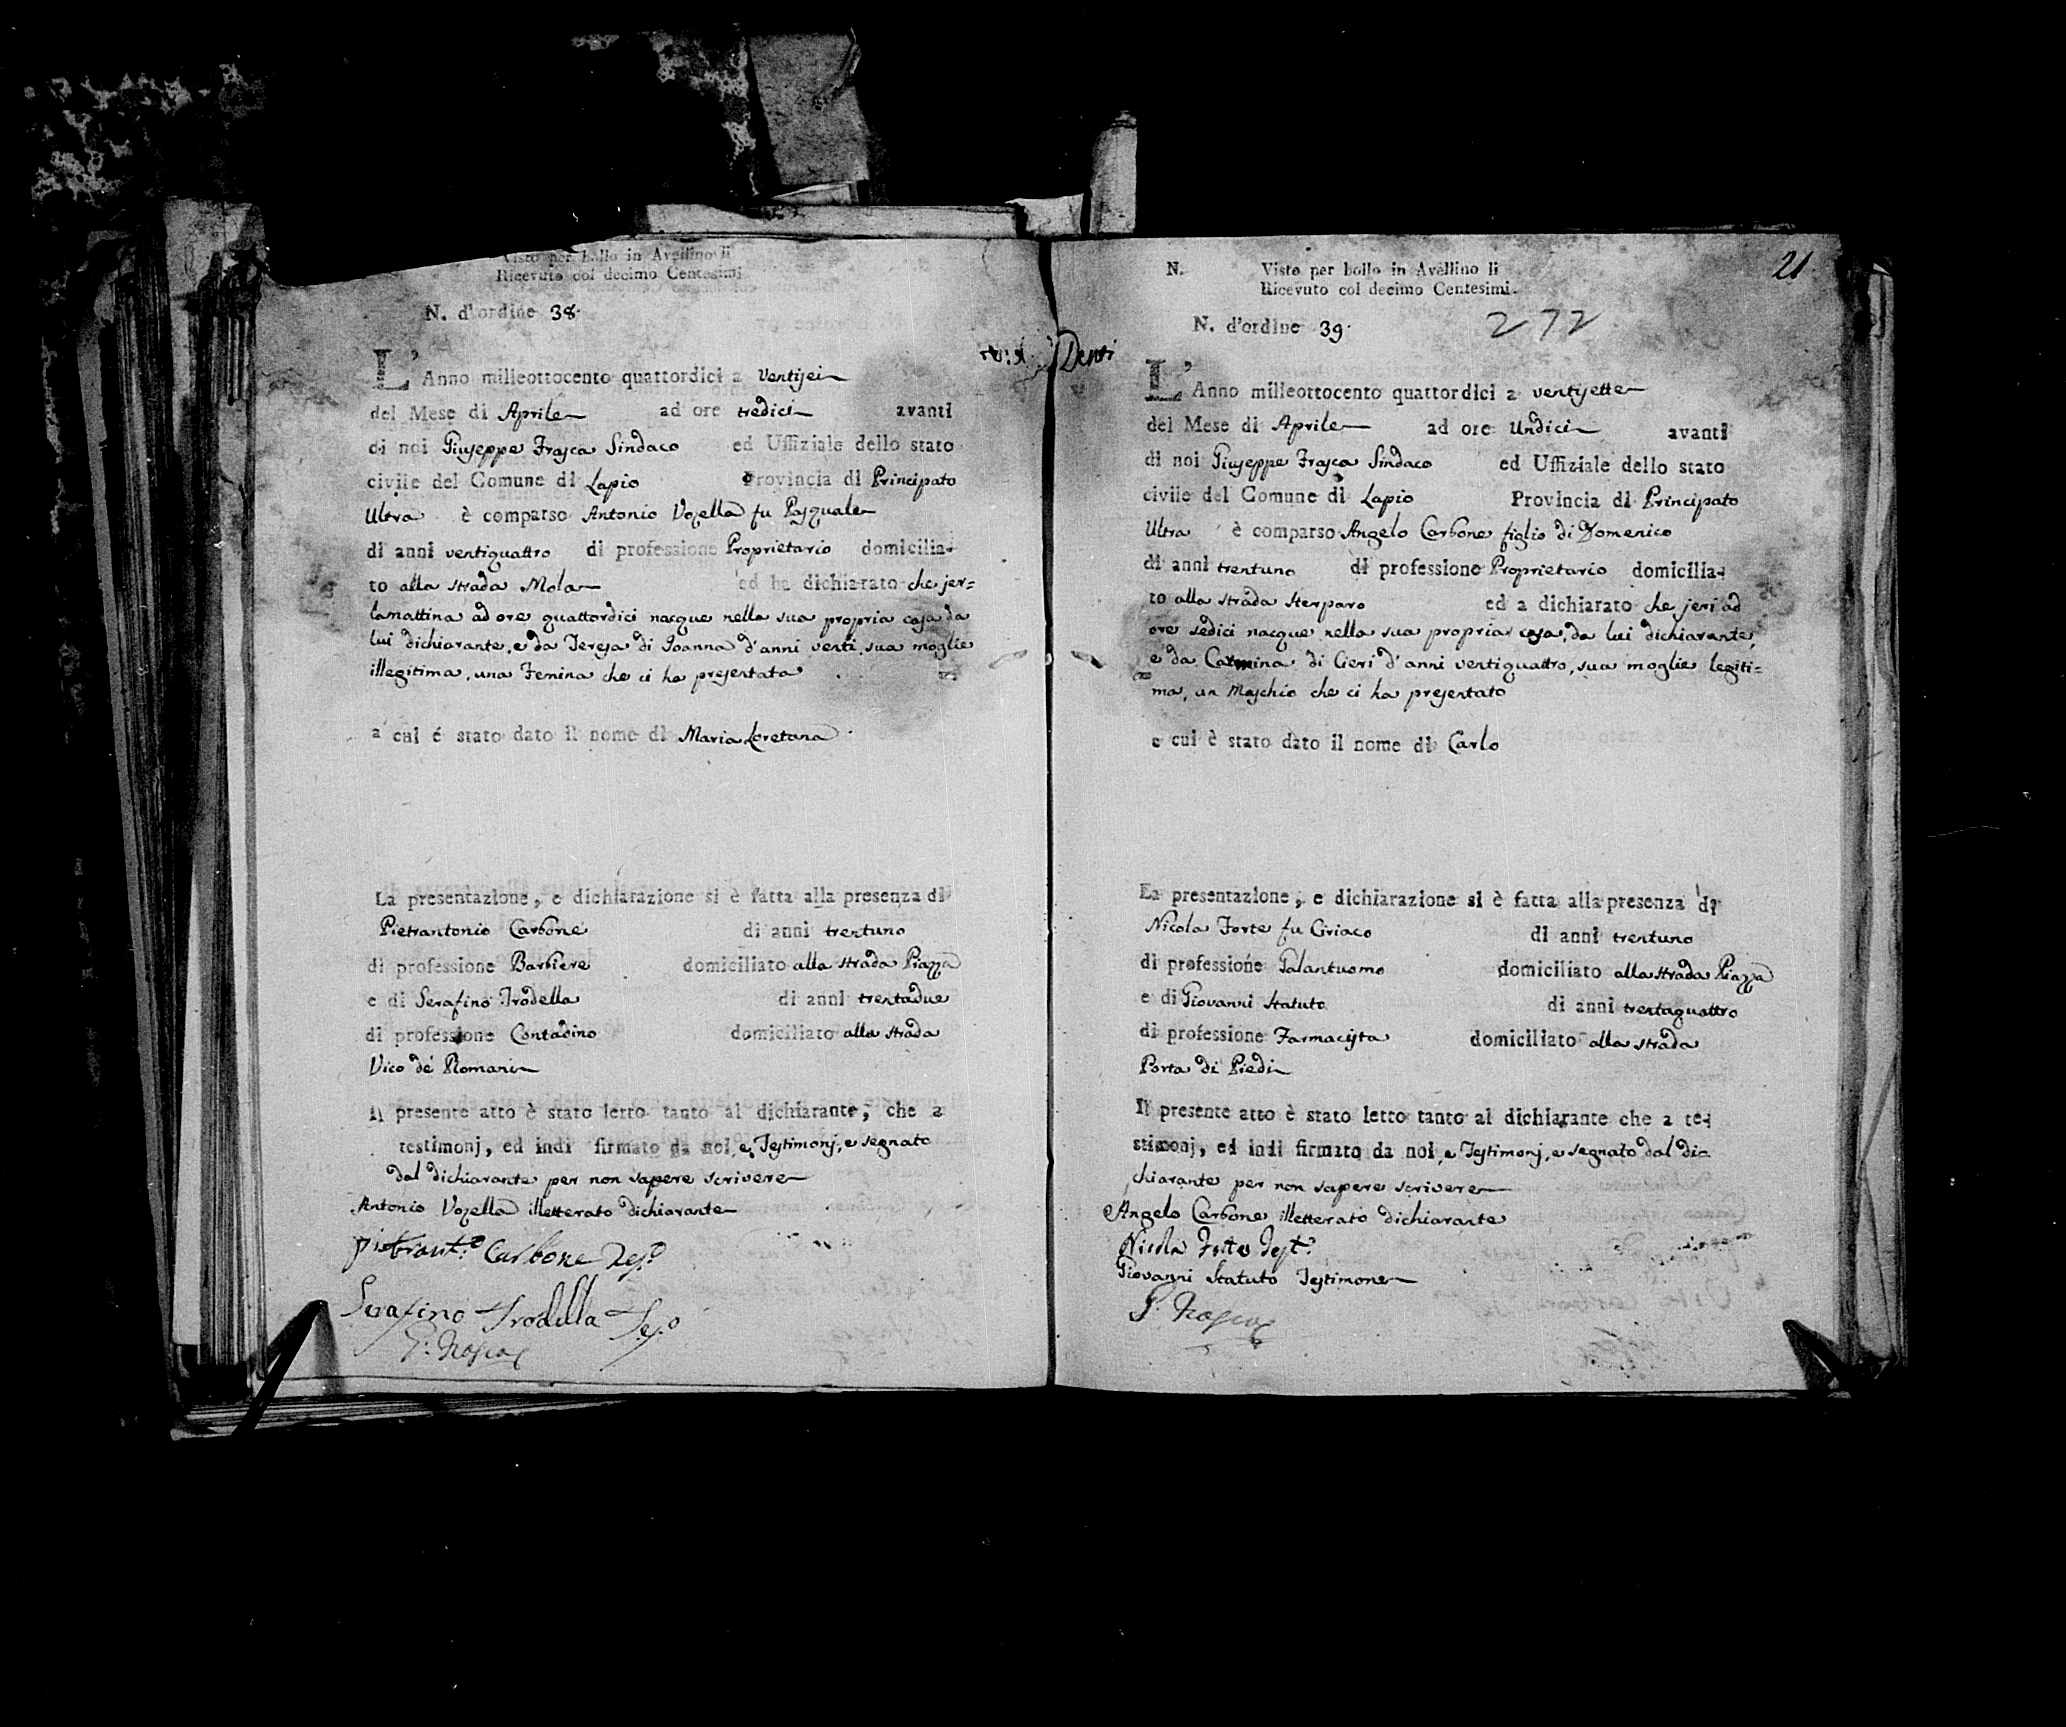 Visto per bollo in Avellino li
Ricevuto col decimo Centesimi
N. d'ordine 38.
L'Anno milleottocento quattordici a ventisei
del Mese di Aprile ad ore tredici avanti
di noi Giuseppe Frasca Sindaco ed Uffiziale dello stato
civile del Comune di Lapio Provincia di Principato
Ultra è comparso Antonio Vozella fu Pasquale
di anni ventiquattro di professione Proprietario domicilia-
to alla strada Mola ed ha dichiarato che jer=
lamattina ad ore quattordici nacque nella sua propria casa da
lui dichiarante, e da Teresa di Joanna d'anni venti, sua moglie
illegitima, una Femina che ci ha presentata
a cui é stato dato il nome di Maria Loretana.
La presentazione, e dichiarazione si è fatta alla presenza di
Pietrantonio Carbone di anni trentuno
di professione Barbiere domiciliato alla strada Piazza
e di Serafino Trodella di anni trentadue
di professione Contadino domiciliato alla strada
Vico de' Romani
Il presente atto è stato letto tanto al dichiarante, che a
testimonj, ed indi firmato da noi, e Testimonj, e segnato
dal dichiarante per non sapere scrivere
Antonio Vozella illetterato dichiarante
Pietrant.o Carbone Tes.o
Serafino Trodella Tes.o
G. Frasca
Denti
N. Visto per bollo in Avellino li
Ricevuto col decimo Centesimi.
21
N. d'ordine 39.
272
L'Anno milleottocento quattordici a ventisette
del Mese di Aprile ad ore Undici avanti
di noi Giuseppe Frasca Sindaco ed Uffiziale dello stato
civile del Comune di Lapio Provincia di Principato
Ultra è comparso Angelo Carbone figlio di Domenico
di anni trentuno di professione Proprietario domicilia-
to alla strada Sterparo ed a dichiarato che jeri ad
ore sedici nacque nella sua propria casa, da lui dichiarante,
e da Carmina di Cieri d'anni ventiquattro, sua moglie legiti=
ma, un Maschio che ci ha presentato
a cui è stato dato il nome di Carlo
La presentazione, e dichiarazione si è fatta alla presenza di
Nicola Forte fu Ciriaco di anni trentuno
di professione Galantuomo domiciliato alla strada Piazza
e di Giovanni Statuto di anni trentaquattro
di professione Farmacista domiciliato alla strada
Porta di Piedi
Il presente atto è stato letto tanto al dichiarante che a te-
stimonj, ed indi firmato da noi, e Testimonj, e segnato dal dic
chiarante per non sapere scrivere
Angelo Carbone illetterato dichiarante
Nicola Forte Test.o
Giovanni Statuto Testimone
G. Frasca